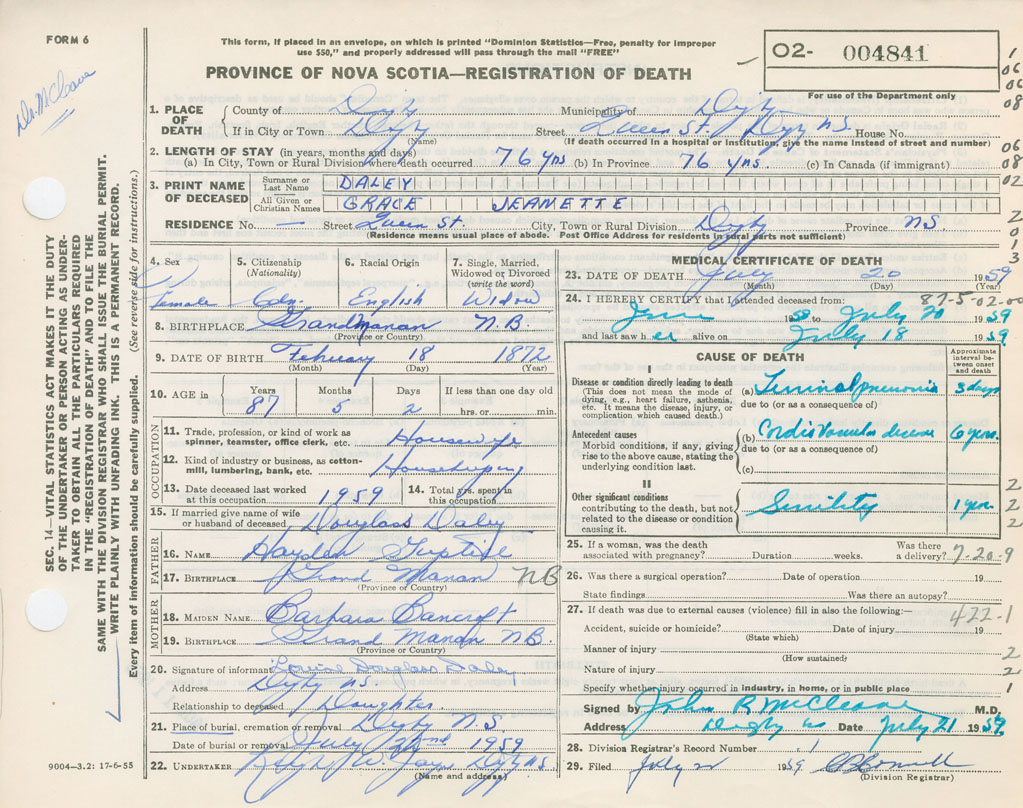 FORM 6
Dr. McCleave
This form, if placed in an envelope, on which is printed "Dominion Statistics—Free, penalty for improper
use $50," and properly addressed will pass through the mail "FREE"
PROVINCE OF NOVA SCOTIA—REGISTRATION OF DEATH
02- 004841
For use of the Department only
1. PLACE OF DEATH
County of Digby Municipality of Digby
If in City or Town Digby Street Queen St. Digby N.S. House No.
(Name) (If death occurred in a hospital or institution, give the name instead of street and number)
2. LENGTH OF STAY (in years, months and days)
(a) In City, Town or Rural Division where death occurred 76 yrs (b) In Province 76 yrs. (c) In Canada (if immigrant)
3. PRINT NAME OF DECEASED
Surname or Last Name DALEY
All Given or Christian Names GRACE JEANETTE
RESIDENCE No. — Street Queen St. City, Town or Rural Division Digby Province NS
(Residence means usual place of abode. Post Office Address for residents in rural parts not sufficient)
4. Sex
Female
5. Citizenship
(Nationality)
Cdn.
6. Racial Origin
English
7. Single, Married,
Widowed or Divorced
(write the word)
Widow
8. BIRTHPLACE Grand Manan N.B.
(Province or Country)
9. DATE OF BIRTH February 18 1872
(Month) (Day) (Year)
10. AGE in
Years Months Days If less than one day old
87 5 2 hrs. or min.
OCCUPATION
11. Trade, profession, or kind of work as
spinner, teamster, office clerk, etc. Housewife
12. Kind of industry or business, as cotton-
mill, lumbering, bank, etc. Housekeeping
13. Date deceased last worked
at this occupation 1959
14. Total yrs. spent in
this occupation
15. If married give name of wife
or husband of deceased Douglass Daley
FATHER
16. NAME Hayden Guptive
17. BIRTHPLACE Grand Manan NB
(Province or Country)
MOTHER
18. MAIDEN NAME Barbara Bancroft
19. BIRTHPLACE Grand Manan N.B.
(Province or Country)
20. Signature of informant Louise Douglass Daley
Address Digby N.S.
Relationship to deceased Daughter
21. Place of burial, cremation or removal Digby N.S
Date of burial or removal July 22nd 1959
22. UNDERTAKER Ralph W. Jayne Digby N.S.
(Name and address)
MEDICAL CERTIFICATE OF DEATH
23. DATE OF DEATH July 20 1959
(Month) (Day) (Year)
24. I HEREBY CERTIFY that I attended deceased from: 87-5-02-00
June 19 to July 20 1959
and last saw her alive on July 18 1959
CAUSE OF DEATH
Approximate
interval be-
tween onset
and death
I
Disease or condition directly leading to death
(This does not mean the mode of
dying, e.g., heart failure, asthenia,
etc. It means the disease, injury, or
complication which caused death.)
(a) Terminal pneumonia 3 days
due to (or as a consequence of)
Antecedent causes
Morbid conditions, if any, giving
rise to the above cause, stating the
underlying condition last.
(b) Cordio Vascular disease 6 years.
due to (or as a consequence of)
(c)
II
Other significant conditions
contributing to the death, but not
related to the disease or condition
causing it.
Senility 1 year
25. If a woman, was the death
associated with pregnancy? Duration weeks. Was there
a delivery? 7-20-9
26. Was there a surgical operation? Date of operation 19
State findings Was there an autopsy?
27. If death was due to external causes (violence) fill in also the following:— 422-1
Accident, suicide or homicide? Date of injury 19
(State which)
Manner of injury
(How sustained)
Nature of injury
Specify whether injury occurred in industry, in home, or in public place
Signed by John R McCleave M.D,
Address Digby NS Date July 21 1959
28. Division Registrar's Record Number
29. Filed July 1959
(Division Registrar)
SEC. 14—VITAL STATISTICS ACT MAKES IT THE DUTY
OF THE UNDERTAKER OR PERSON ACTING AS UNDER-
TAKER TO OBTAIN ALL THE PARTICULARS REQUIRED
IN THE "REGISTRATION OF DEATH" AND TO FILE THE
SAME WITH THE DIVISION REGISTRAR WHO SHALL ISSUE THE BURIAL PERMIT.
WRITE PLAINLY WITH UNFADING INK. THIS IS A PERMANENT RECORD.
Every item of information should be carefully supplied. (See reverse side for instructions.)
9004—3.2: 17-6-55
1
06
06
08
06
08
02
2
0
1
3
2
2
2
2
2
1